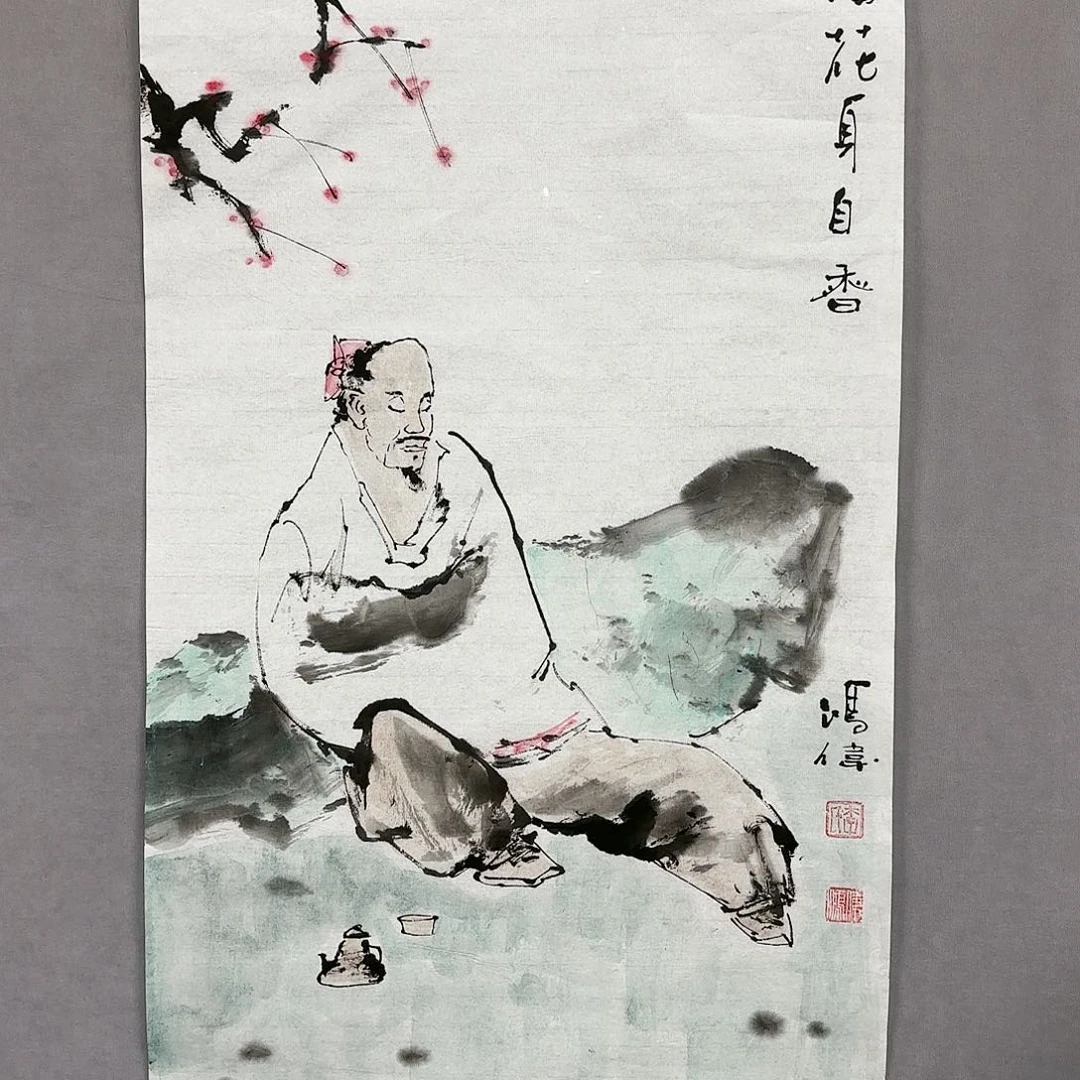 花身自香
鴻偉